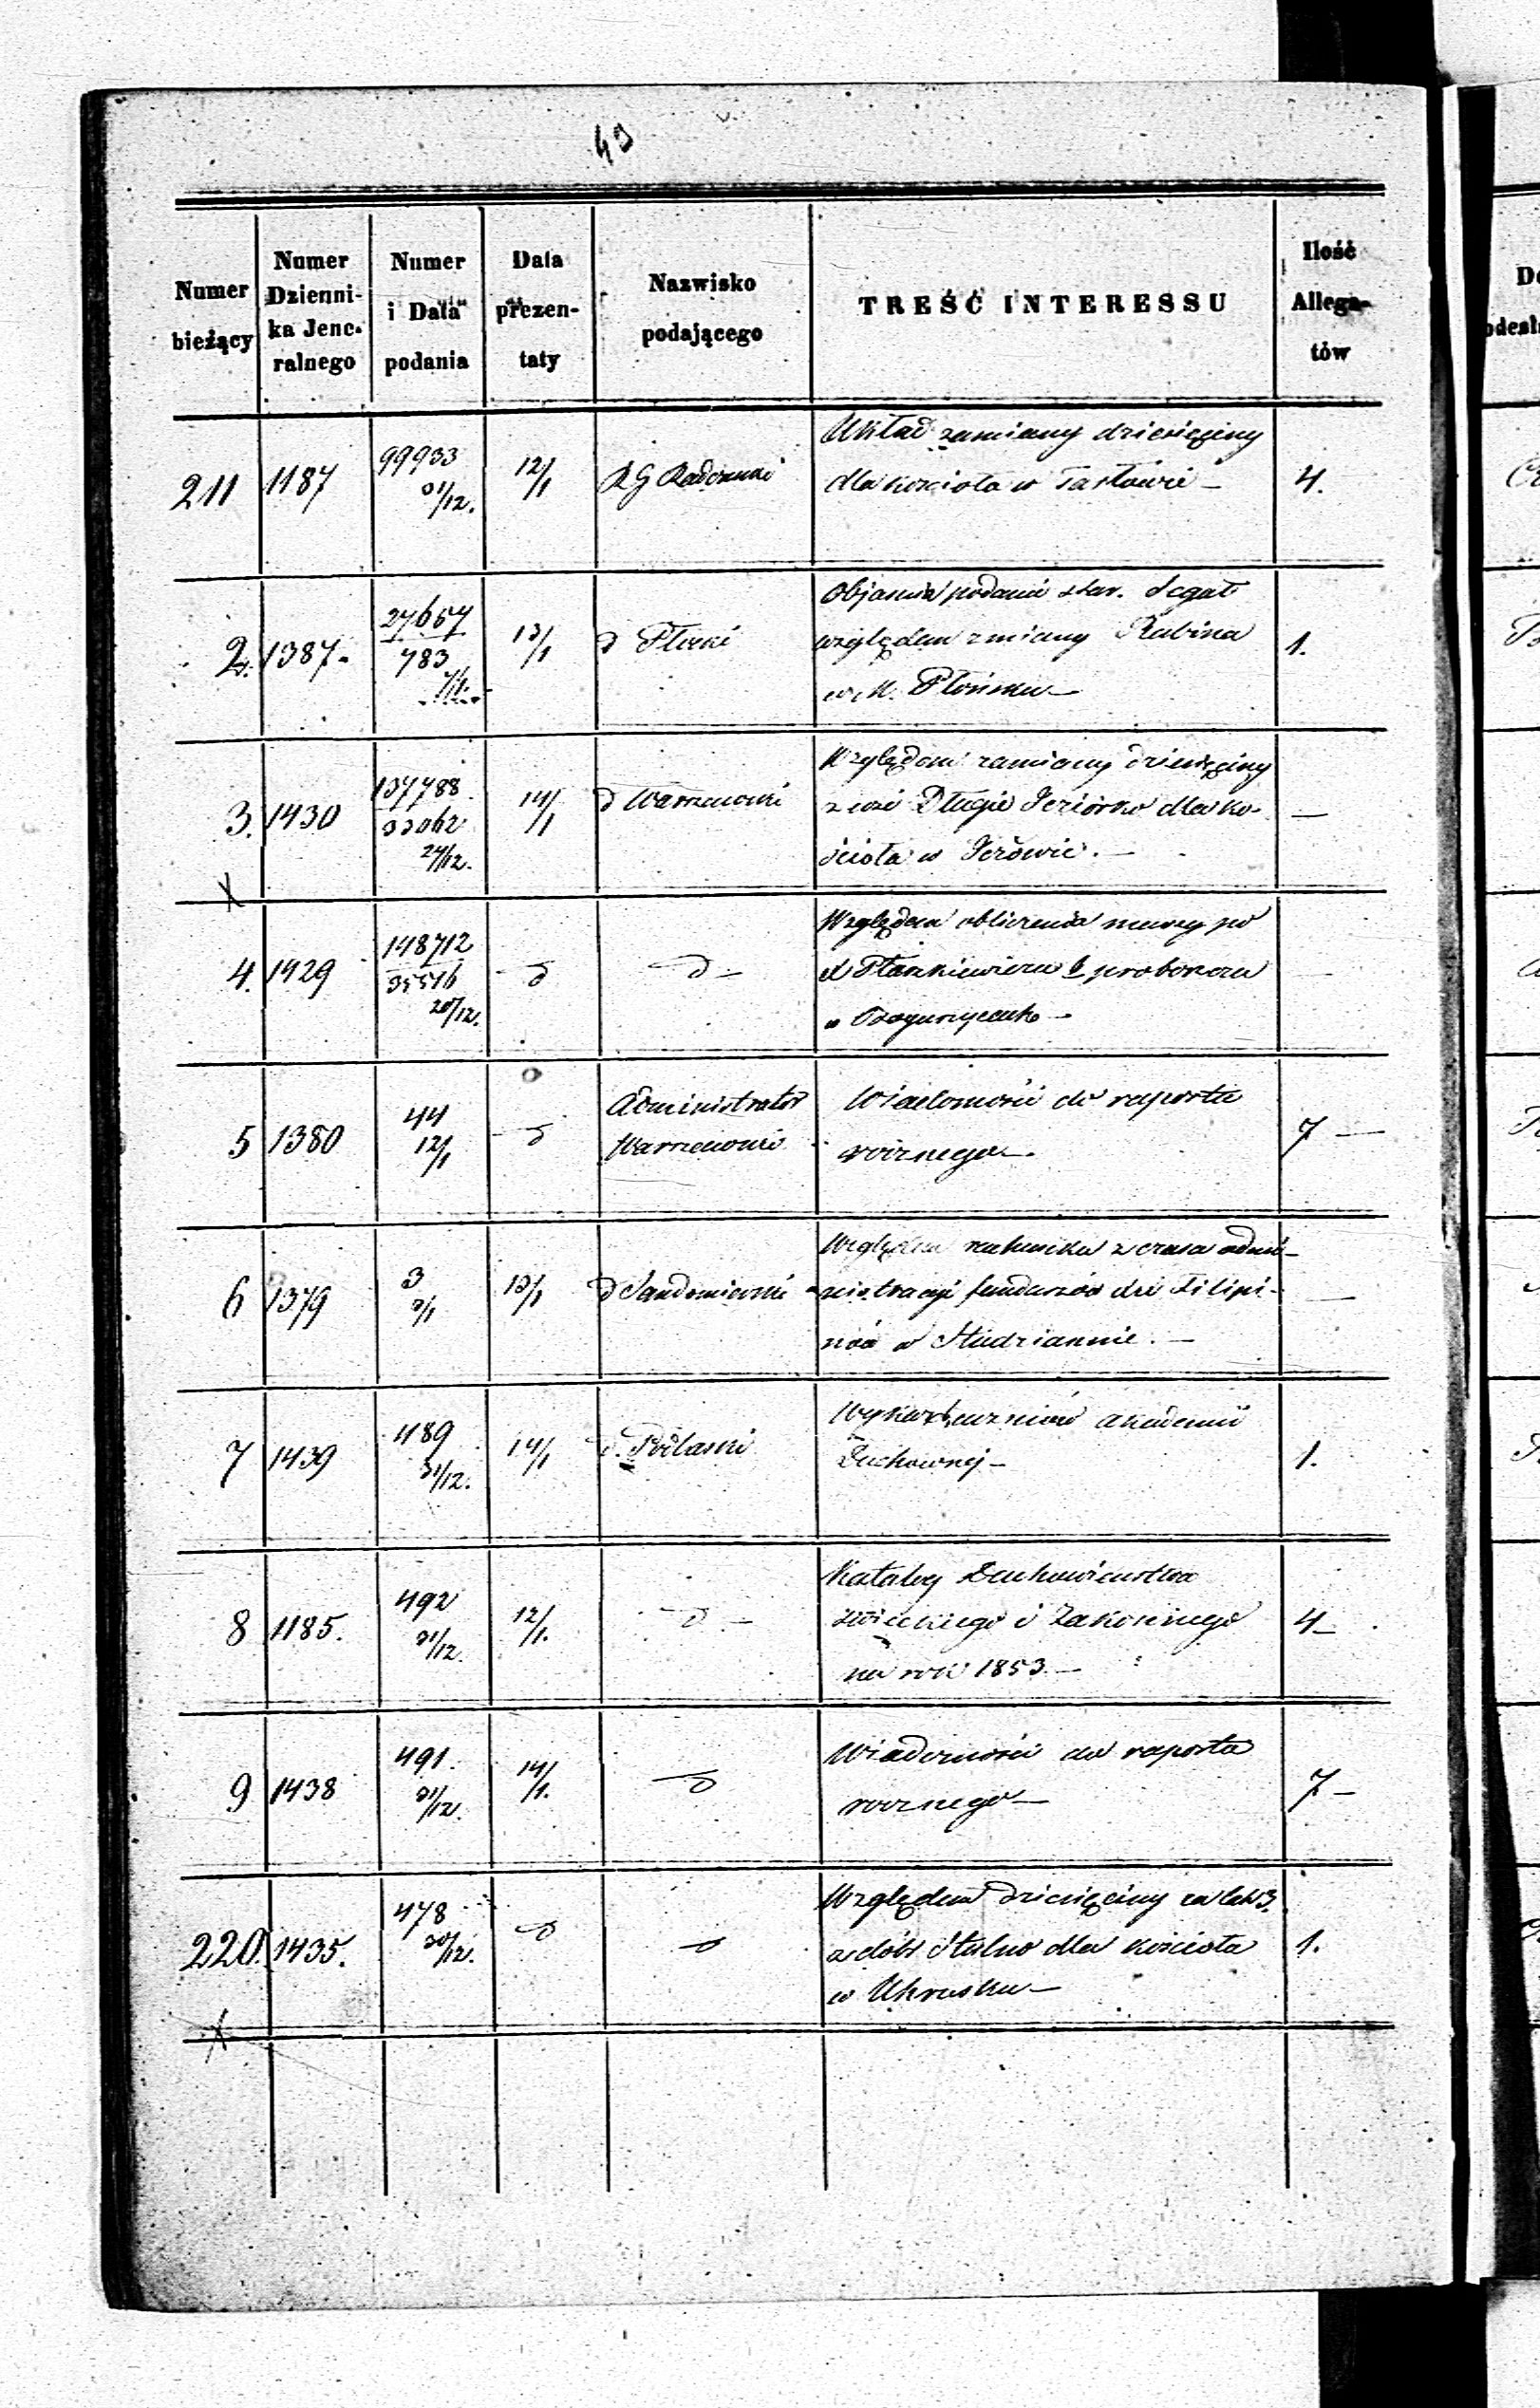 49
Numer bieżący
Numer Dzienni-
ka Jene-
ralnego
Numer
i Data
podania
Data
prezen-
taty
Nazwisko
podającego
TREŚĆ INTERESSU
Ilość
Allega-
tów
211 1187 99933 31/12. 12/1 RG Radomski 4.
Układ zamiany dziesięciny
dla kościoła w
2. 1387. 27657 783 13/1 d Płocki 1.
Objaśnia podanie star. Segał
względem zmiany Rabina
w M. Płońsku
3. 1430 137788 33062 24/12. 14/1 d Warszawski —
Względem zamiany dziesięciny
z wsi Długie Jeziorko dla ko-
ścioła w Jeżowie. —
4. 1429 148712 35576 20/12. d d
Względem obliczenia massy po
proboszczu
5 1380 44 12/1 d Administrator
Warszawski 7 —
Wiadomości do raportu
rocznego.
6 1379 3 3/1 13/1 d Sandomierski —
Względem rachunku z czasu admi-
nistracji funduszów XX Filipi-
nów w Studziannie. —
7 1439 489 31/12. 14/1 d. Podlaski 1.
Wykaz uczniów akademii
Duchownej —
8 1185. 492 31/12. 12/1. d 4
Katalog Duchowieństwa
świeckiego i Zakonnego
na rok 1853. —
9 1438 491. 31/12. 14/1. d 7 —
Wiadomości do raportu
rocznego —
220. 1435. 478 30/12. d d 1.
Względem dziesięciny
z dóbr Stulno dla kościoła
w Uhrusku —